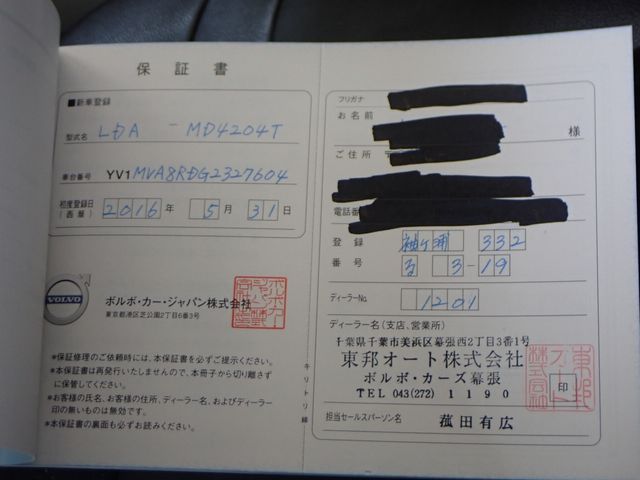 保証書
■新車登録
型式名 LDA － MD4204T
車台番号 YV1MVA8RDG2327604
初度登録日(西暦) 2016年 5月 31日
VOLVO
ボルボ・カー・ジャパン株式会社
東京都港区芝公園2丁目6番3号
*保証修理のご依頼時には、本保証書を必ずご提示ください。
*本保証書は再発行いたしませんので、本冊子から切り離さず
に保管してください。
*お客様の氏名、お客様の住所、ディーラー名、およびディーラー
印の無いものは無効です。
*本保証書の裏面も必ずお読みください。
キリトリ線
フリガナ
お名前
様
ご住所
電話番
登録 袖ケ浦 332
番号 る 3-19
ディーラーNo. 1201
ディーラー名(支店、営業所)
千葉県千葉市美浜区幕張西2丁目3番1号
東邦オート株式会社
ボルボ・カーズ幕張
TEL 043(272)1190
印
担当セールスパーソン名 菰田有広